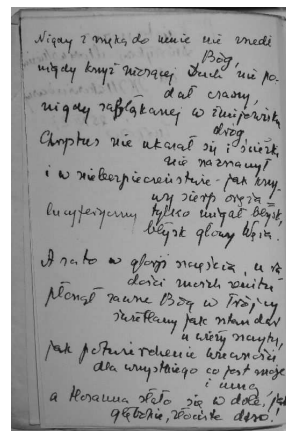 Nigdy z męką do mnie nie zszedł
Bóg,
nigdy krzyż niosącej Duch nie po-
dał czarny,
nigdy zabłąkanej w
dróg
Chrystus nie ukazał się i ścieżk
nie zaznaczył
i w niebezpieczeństwie - jak krzy-
wy sierp
lucyferyczny tylko migał błysk,
błysk głowy Węża.
A za to w glorji szczęścia, u ra-
dości moich
płonął zawsze Bóg w Trójcy
świetlany jak sztandar
u wieży szczytu,
jak potwierdzenie wieczności
dla wszystkiego co jest moje
i mną
a Hosanna słało się w dole, jak
głębokie, złociste dno!